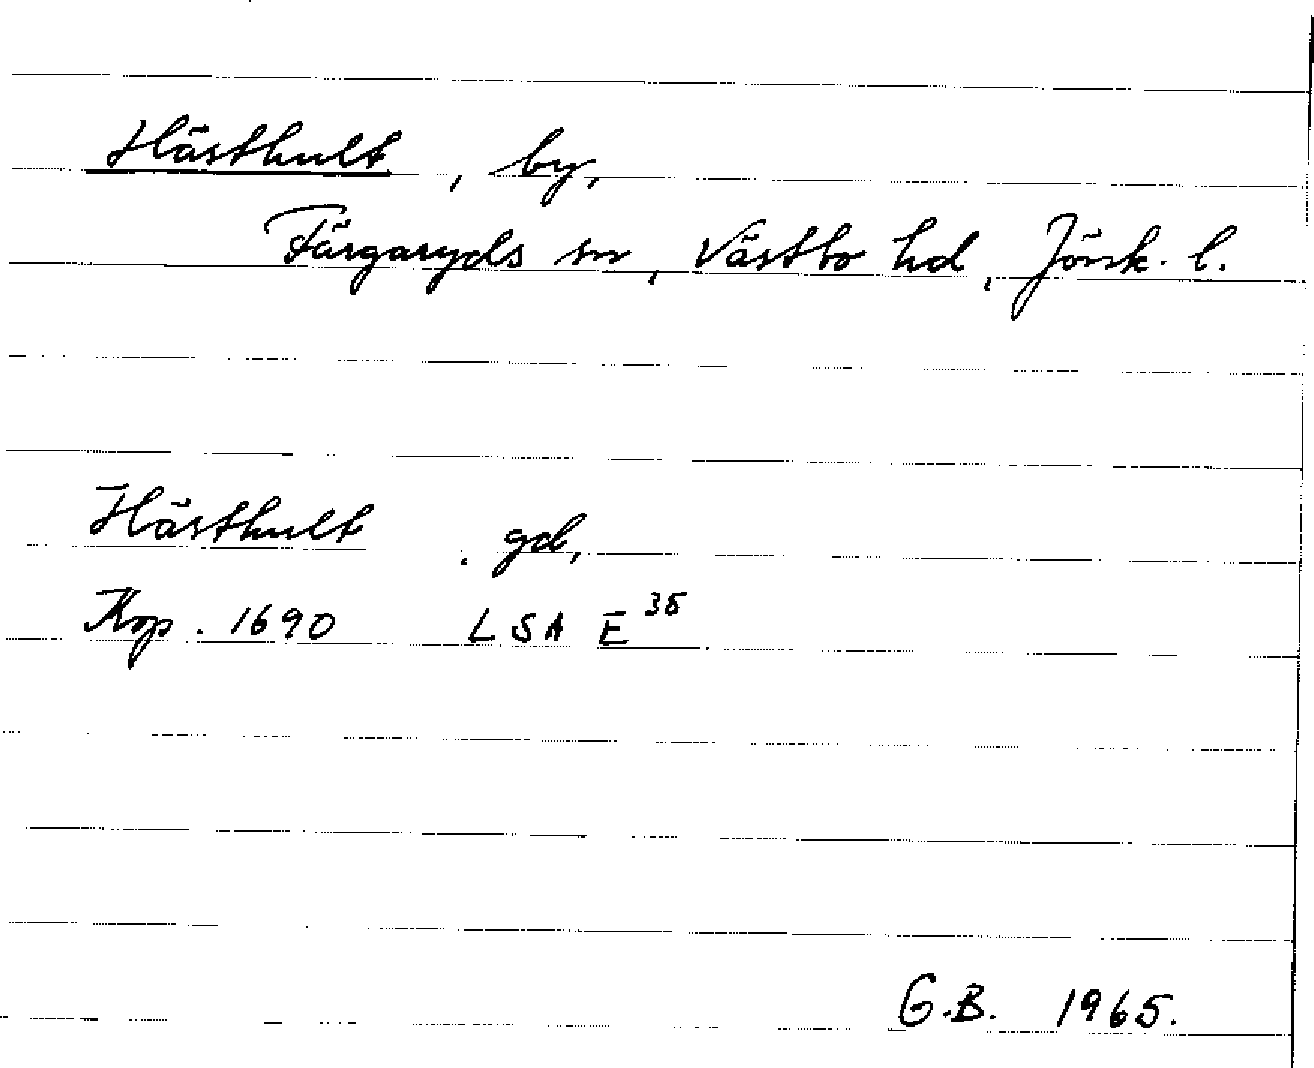 Hästhult, by,
Färgaryds sn, Västbo hd, Jönk. l.
Hästhult. gd,
Kop. 1690 LSA E 35
G.B. 1965.